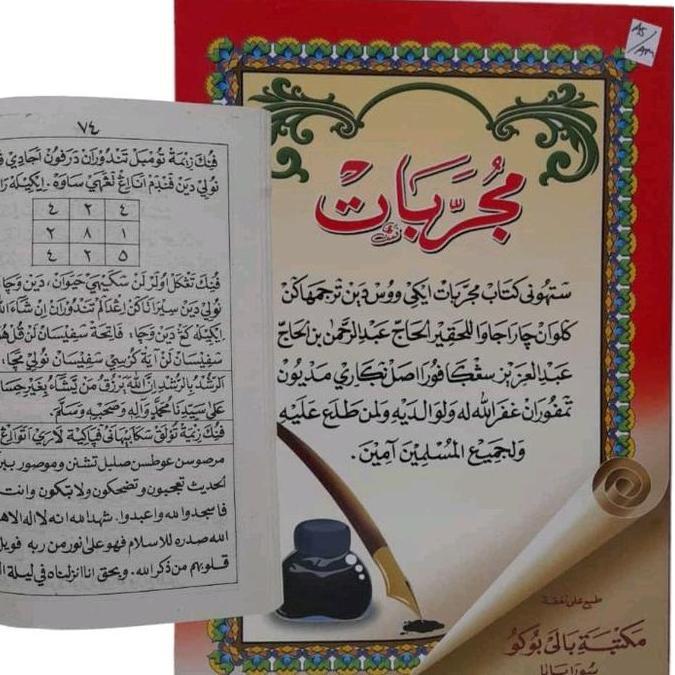 ٧٤
فيك زيمة تومبل تندوران درفون اجادي
نولي دين قندم اناإغ لمهي ساوه. ايكيله
٤ ٢ ٤
٢ ٨ ١
٤ ٢ ٥
فيك تشكل اولر لن سكيبهي حيوان، دين وچا
نولي دين سيرانا كن إغدالم تندوران إن شاء
ايكيله كغ دين وچا. فاتحة سفيسان لن قل هو
سفيسان لن آية كرسي سفيسان نولي مچا:
الرشد بالرشد إن الله يرزق من يشاء بغير حسا
على سيدنا محمد وآله وصحبه وسلم.
فيك زيمة تولق سكابيهاني فياكية لاري اتوا
مرصوسن عوطسن صليل تشتن وموصور
لحديث تعجبون وتضحكون ولا تبكون وانت
فاسجدوا لله واعبدوا. شهد الله انه لا اله الا
الله صدره للاسلام فهو على نور من ربه فويل
قلوبهم من ذكر الله. وبحق انا انزلناه في ليلة
A5
مُجَرَّبَات
ستهوني كتاب مجربات ايكي ووس دين ترجمهاكن
كلوان چارا جاوا للحقير الحاج عبد الرحمن بن الحاج
عبد العزيز سڠكافورا اصل نكاري مديون
تمفوران غفر الله له ولوالديه ولمن طلع عليه
ولجميع المسلمين آمين.
طبع على نفقة
مكتبة بالى بوكو
سورابايا